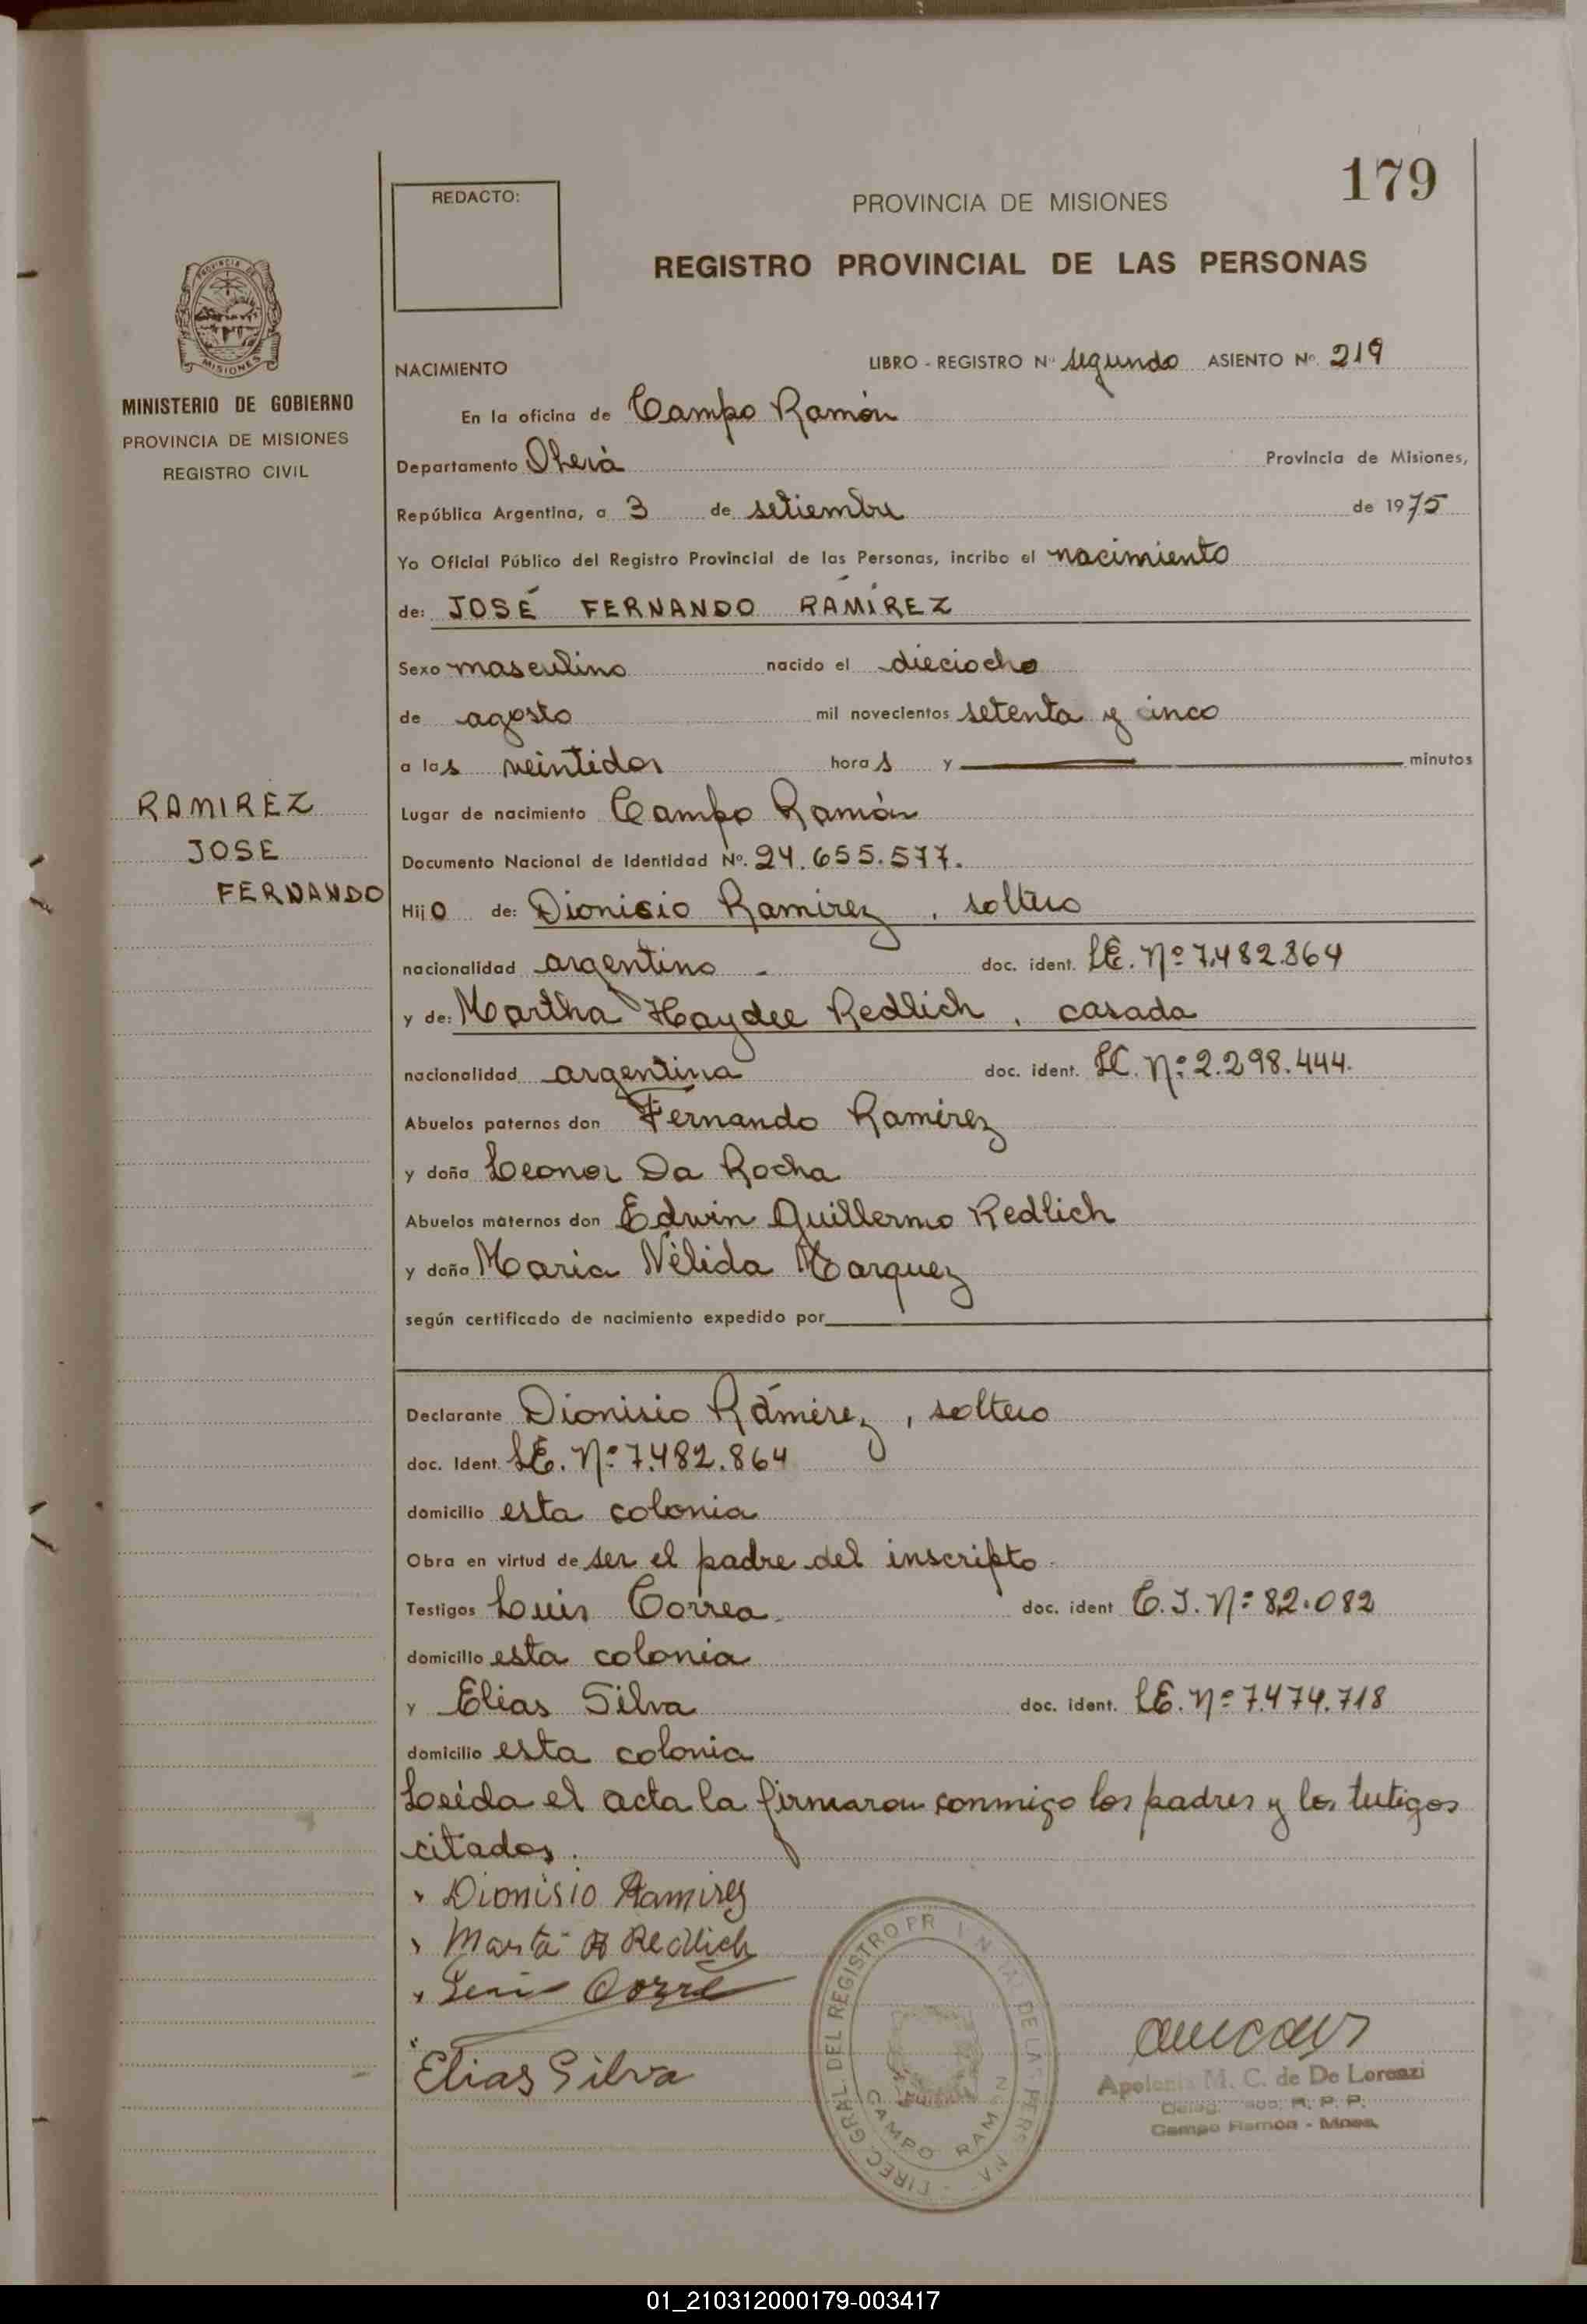 179
REDACTO:
PROVINCIA DE MISIONES
REGISTRO PROVINCIAL DE LAS PERSONAS
PROVINCIA DE
MISIONES
MINISTERIO DE GOBIERNO
PROVINCIA DE MISIONES
REGISTRO CIVIL
RAMIREZ
JOSE
FERNANDO
NACIMIENTO LIBRO - REGISTRO Nº segundo ASIENTO Nº 219
En la oficina de Campo Ramón
Departamento Oberá Provincia de Misiones,
República Argentina, a 3 de setiembre de 1975
Yo Oficial Público del Registro Provincial de las Personas, incribo el nacimiento
de: JOSÉ FERNANDO RAMÍREZ
Sexo masculino nacido el dieciocho
de agosto mil novecientos setenta y cinco
a las veintidos horas y minutos
Lugar de nacimiento Campo Ramón
Documento Nacional de Identidad Nº. 24.655.577.
Hijo de: Dionisio Ramírez, soltero
nacionalidad argentino doc. ident. L.E. Nº 7.482.864
y de: Martha Haydee Redlich, casada
nacionalidad argentina doc. ident. L.C. Nº 2.298.444.
Abuelos paternos don Fernando Ramírez
y doña Leonor Da Rocha
Abuelos maternos don Edwin Guillermo Redlich
y doña María Nélida Marquez
según certificado de nacimiento expedido por
Declarante Dionisio Rámirez, soltero
doc. Ident. L.E. Nº 7.482.864
domicilio esta colonia
Obra en virtud de ser el padre del inscripto.
Testigos Luis Correa doc. ident C.I. Nº 82.082
domicilio esta colonia
y Elias Silva doc. ident. L.E. Nº 7.474.718
domicilio esta colonia
Leída el acta la firmaron conmigo los padres y los testigos
citados.
Dionisio Ramirez
Marta H Redlich
Luis Corre
Elias Silva
DIREC. GRAL. DEL REGISTRO PR IN IAL DE LAS PERS NA
CAMPO RAMON
Apolonia M. C. de De Lorenzi
Deleg. R. P. P.
Campo Ramón - Mnes.
01_210312000179-003417